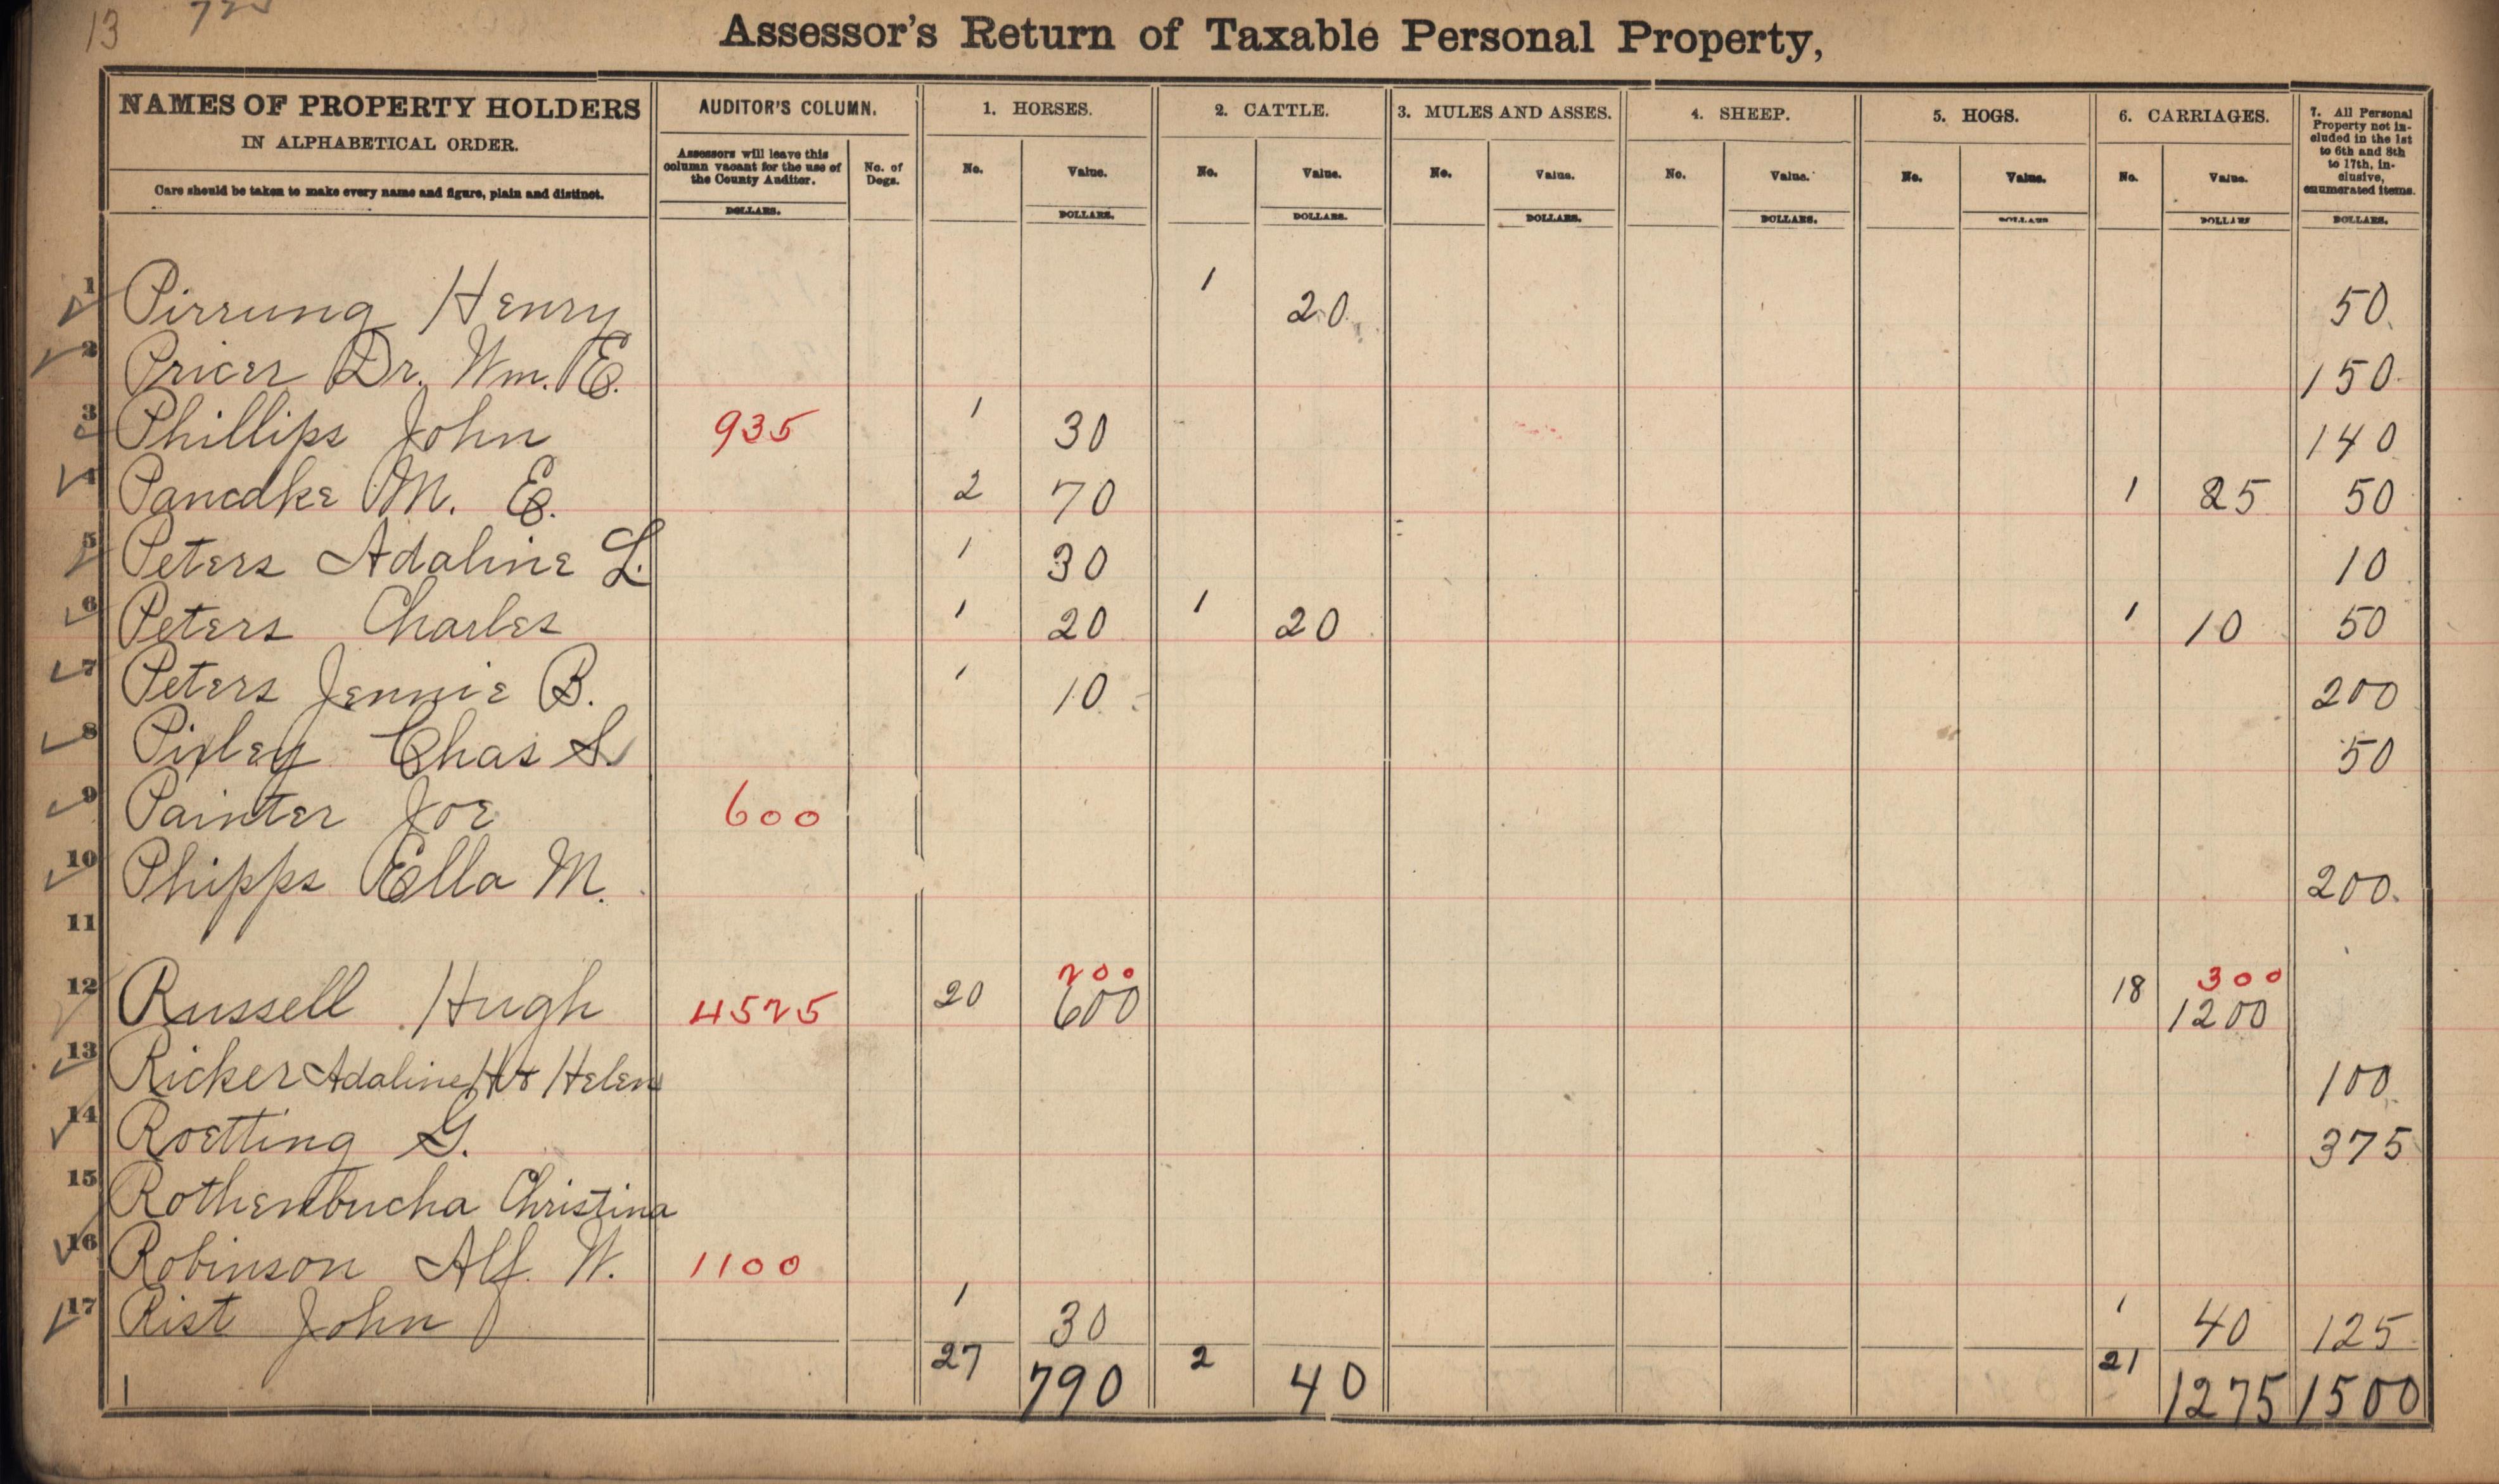 13
Assessor's Return of Taxable Personal Property,
NAMES OF PROPERTY HOLDERS
IN ALPHABETICAL ORDER.
Care should be taken to make every name and figure, plain and distinct.
AUDITOR'S COLUMN.
Assessors will leave this
column vacant for the use of
the County Auditor.
DOLLARS.
No. of
Dogs.
1. HORSES.
No. Value.
DOLLARS.
2. CATTLE.
No. Value.
DOLLARS.
3. MULES AND ASSES.
No. Value.
DOLLARS.
4. SHEEP.
No. Value.
DOLLARS.
5. HOGS.
No. Value.
DOLLARS
6. CARRIAGES.
No. Value.
DOLLARS
7. All Personal
Property not in-
cluded in the 1st
to 6th and 8th
to 17th, in-
clusive,
enumerated items.
DOLLARS.
1 Pirrung Henry 1 20 50
2 Pricer Dr. Wm. E. 150
3 Phillips John 935 1 30 140
4 Pancake M. E. 2 70 1 25 50
5 Peters Adaline L. 1 30 10
6 Peters Charles 1 20 1 20 1 10 50
7 Peters Jennie B. 1 10 200
8 Pixley Chas S. 50
9 Painter Joe 600
10 Phipps Ella M. 200
11
200 300
12 Russell Hugh 4525 20 600 18 1200
13 Ricker Adaline H & Helen 100
14 Roetting G. 375
15 Rothenbucha Christina
16 Robinson Alf. W. 1100
17 Rist John 1 30 1 40 125
27 790 2 40 21 1275 1500